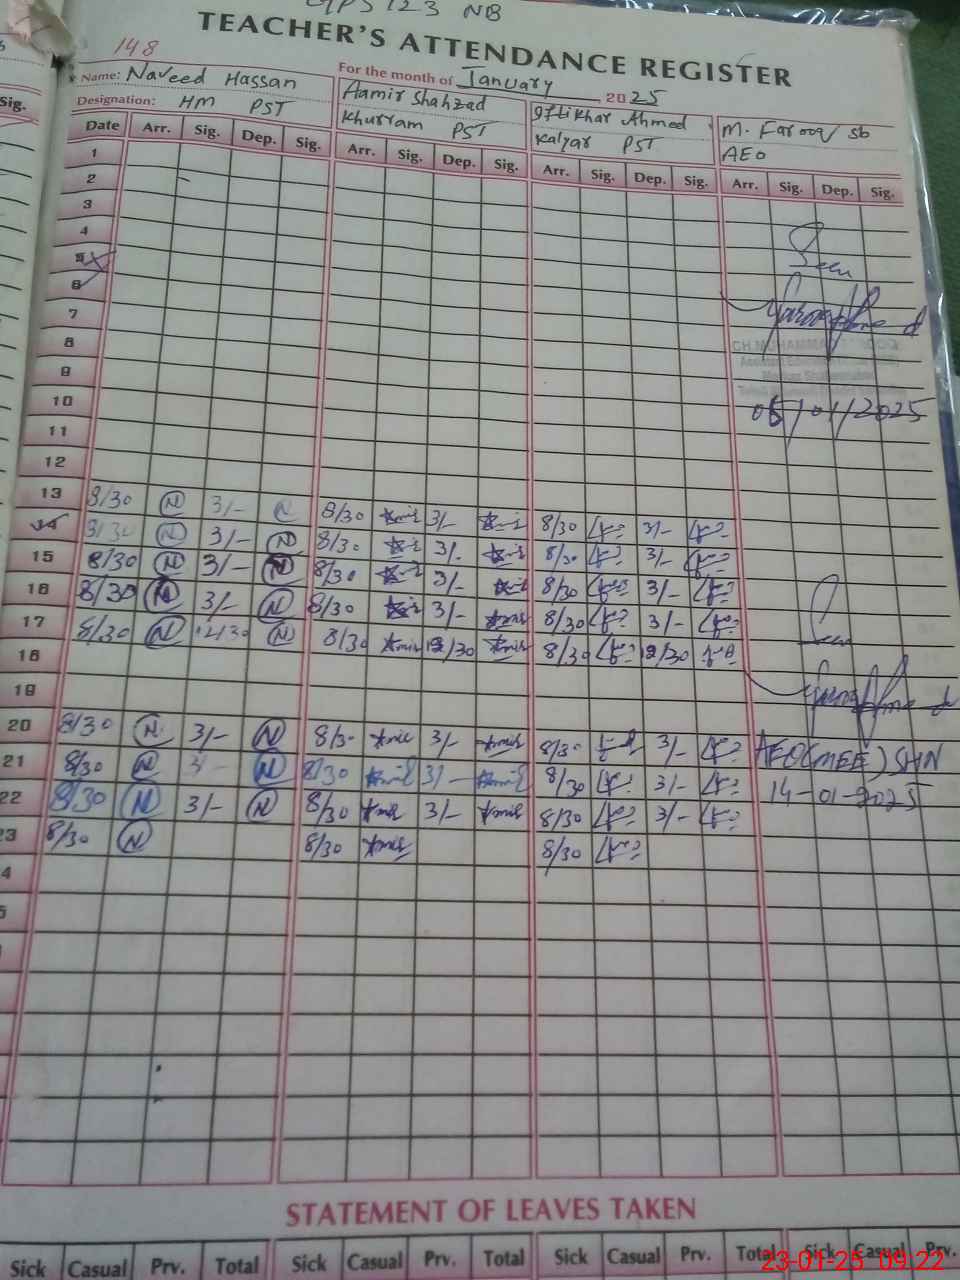 GPS 123 NB
TEACHER'S ATTENDANCE REGISTER
148
Name: Naveed Hassan
For the month of January 2025
Designation: HM PST
Aamir Shahzad
Khurram PST
Iftikhar Ahmed
Kalyar PST
M. Farooq Sb
AEO
Date Arr. Sig. Dep. Sig. Arr. Sig. Dep. Sig. Arr. Sig. Dep. Sig. Arr. Sig. Dep. Sig.
1
2
3
4
5
6
7
8
9
10
11
12
Seen
05/01/2025
13 8/30 N 3/- N 8/30 Amir 3/- Amir 8/30 3/-
14 8/30 N 3/- N 8/30 Amir 3/- Amir 8/30 3/-
15 8/30 N 3/- N 8/30 Amir 3/- Amir 8/30 3/-
16 8/30 N 3/- N 8/30 Amir 3/- Amir 8/30 3/-
17 8/30 N 12/30 N 8/30 Amir 12/30 Amir 8/30 12/30
18
19
Seen
20 8/30 N 3/- N 8/30 Amir 3/- Amir 8/30 3/-
21 8/30 N 3/- N 8/30 Amir 3/- Amir 8/30 3/-
22 8/30 N 3/- N 8/30 Amir 3/- Amir 8/30 3/-
23 8/30 N 8/30 Amir 8/30
AEO(MEE) SHN
14-01-2025
4
5
STATEMENT OF LEAVES TAKEN
Sick Casual Prv. Total Sick Casual Prv. Total Sick Casual Prv. Total Sick Casual Prv.
23-01-25 09:22